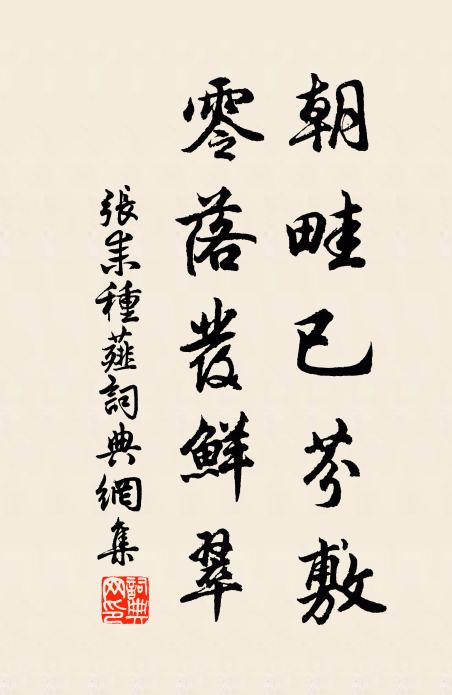 朝畦已芬敷
零落發鮮翠
張耒種薤詞典網集
詞典网印